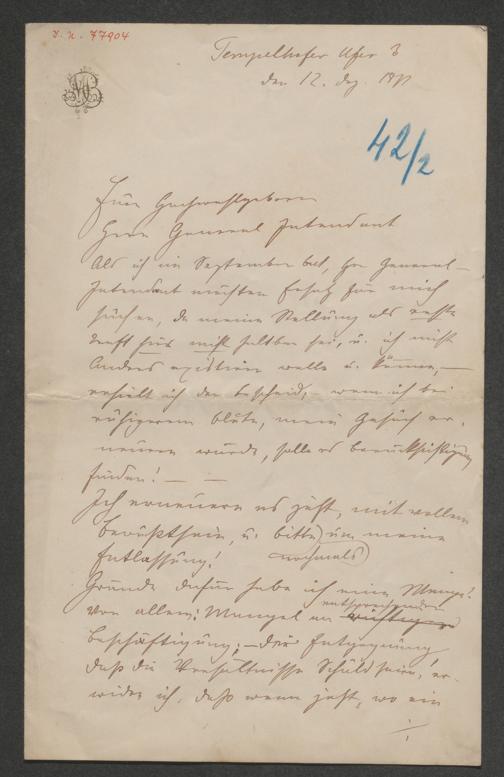 J. N. 77904
Tempelhofer Ufer 3
den 12. Dez. 1871
42/2
Euer Hochwohlgeboren
Herr General Intendant
Als ich im September bat, Hr. General-
Intendant möchten Ersatz für mich
suchen, da meine Stellung als erste
Kraft für mich haltbar sei, u. ich nicht
anders existiren wolle u. könne, —
erhielt ich den Bescheid, – wenn ich bei
ruhigerem Blute, mein Gesuch er-
neuern würde, solle es Berücksichtigung
finden! — —
Ich erneuere es jetzt, mit vollem
Bewußtsein, u. bitte um meine
nochmals
Entlassung!
Gründe dafür habe ich eine Menge!
Vor allem: Mangel an
entsprechender
Beschäftigung; – der Entgegnung,
daß die Verhältnisse Schuld seien, er-
widre ich, daß wenn jetzt, wo ein
./.